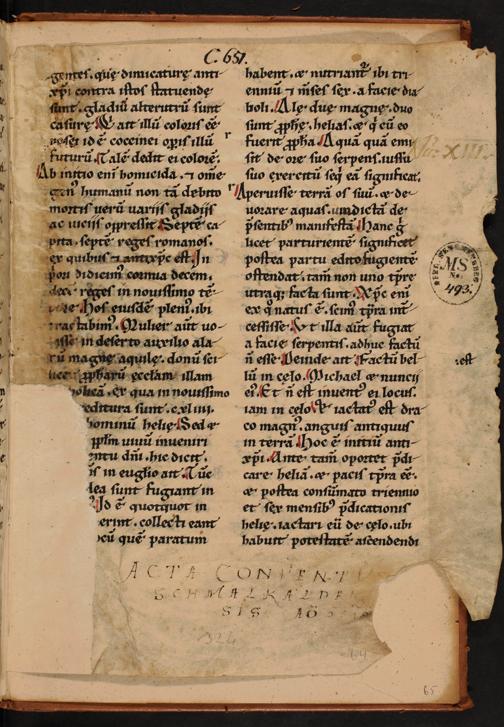 C. 651.
gentes. quę dimicaturę anti
xp̄i contra istos statuendę
sunt. gladiū alterutrū sunt
casurę. Et ait illū coloris eē
rosei id ē coccinei opis illū
futurū. Talē dedit ei colorē.
Ab initio enī homicida. & ōme
genꝰ humanū non tā debito
mortis verū variis gladiis
ac viciis oppressit. Septē ca
pita. septē reges romanos.
ex quibus & antixp̄c est. In
decē reges in novissimo tē
pore. Hos eiusdē pleniꝰ ibi
tractabimꝰ. Mulier aūt vo
lasse in deserto auxilio ala
rū magnę aquilę. donū sci
licę p̄pharū ecclam illam
ex qua in novissimo
creditura sunt. cxl iiii.
hominū helię. Sed &
pplm vivū inveniri
dn̄i. hic dicit.
is in euglio ait. Tūc
dea sunt fugiant in
Id ē quotquot in
erint. collecti eant
locū quē paratum
habent. & nutriant ibi tri
enniū & m̄ses sex. a facie dia
boli. Alę duę magnę. duo
sunt p̄phę. helias. & q̄ cū eo
fuerit p̄pha. Aquā quā emi
sit de ore suo serpens. iussu
suo exercitū seq̄ eā significat.
Aperuisse terrā os suū. & de
vorare aquas. vindictā de
p̄sentibꝰ manifestā. Hanc g̊
licet parturientē significet
postea partu edito fugientē
ostendat. tam̄ non uno tp̄re
utraq; facta sunt. Xp̄c enī
ex q̊ natus ē. scimꝰ tp̄ra int̄
cessisse. Ut illa aūt fugiat
a facie serpentis. adhuc factū
n̄ esse. Deinde ait. Factū bel
lū in cęlo. Michael & nuncii
eiꝰ. Et n̄ est inventꝰ ei locus.
iam in cęlo. & iactatꝰ est dra
co magnꝰ. anguis antiquus
in terrā. Hoc ē initiū anti
xp̄i. Ante tam̄ oportet p̄di
care heliā. & pacis tp̄ra eē.
& postea consūmato triennio
et sex mensibꝰ p̄dicationis
helię. iactari eū de cęlo. ubi
habuit potestatē ascendendi
est
MS
No.
493.
ACTA CONVENTV
SCHMALKALDE
SIS AŌ
324
65